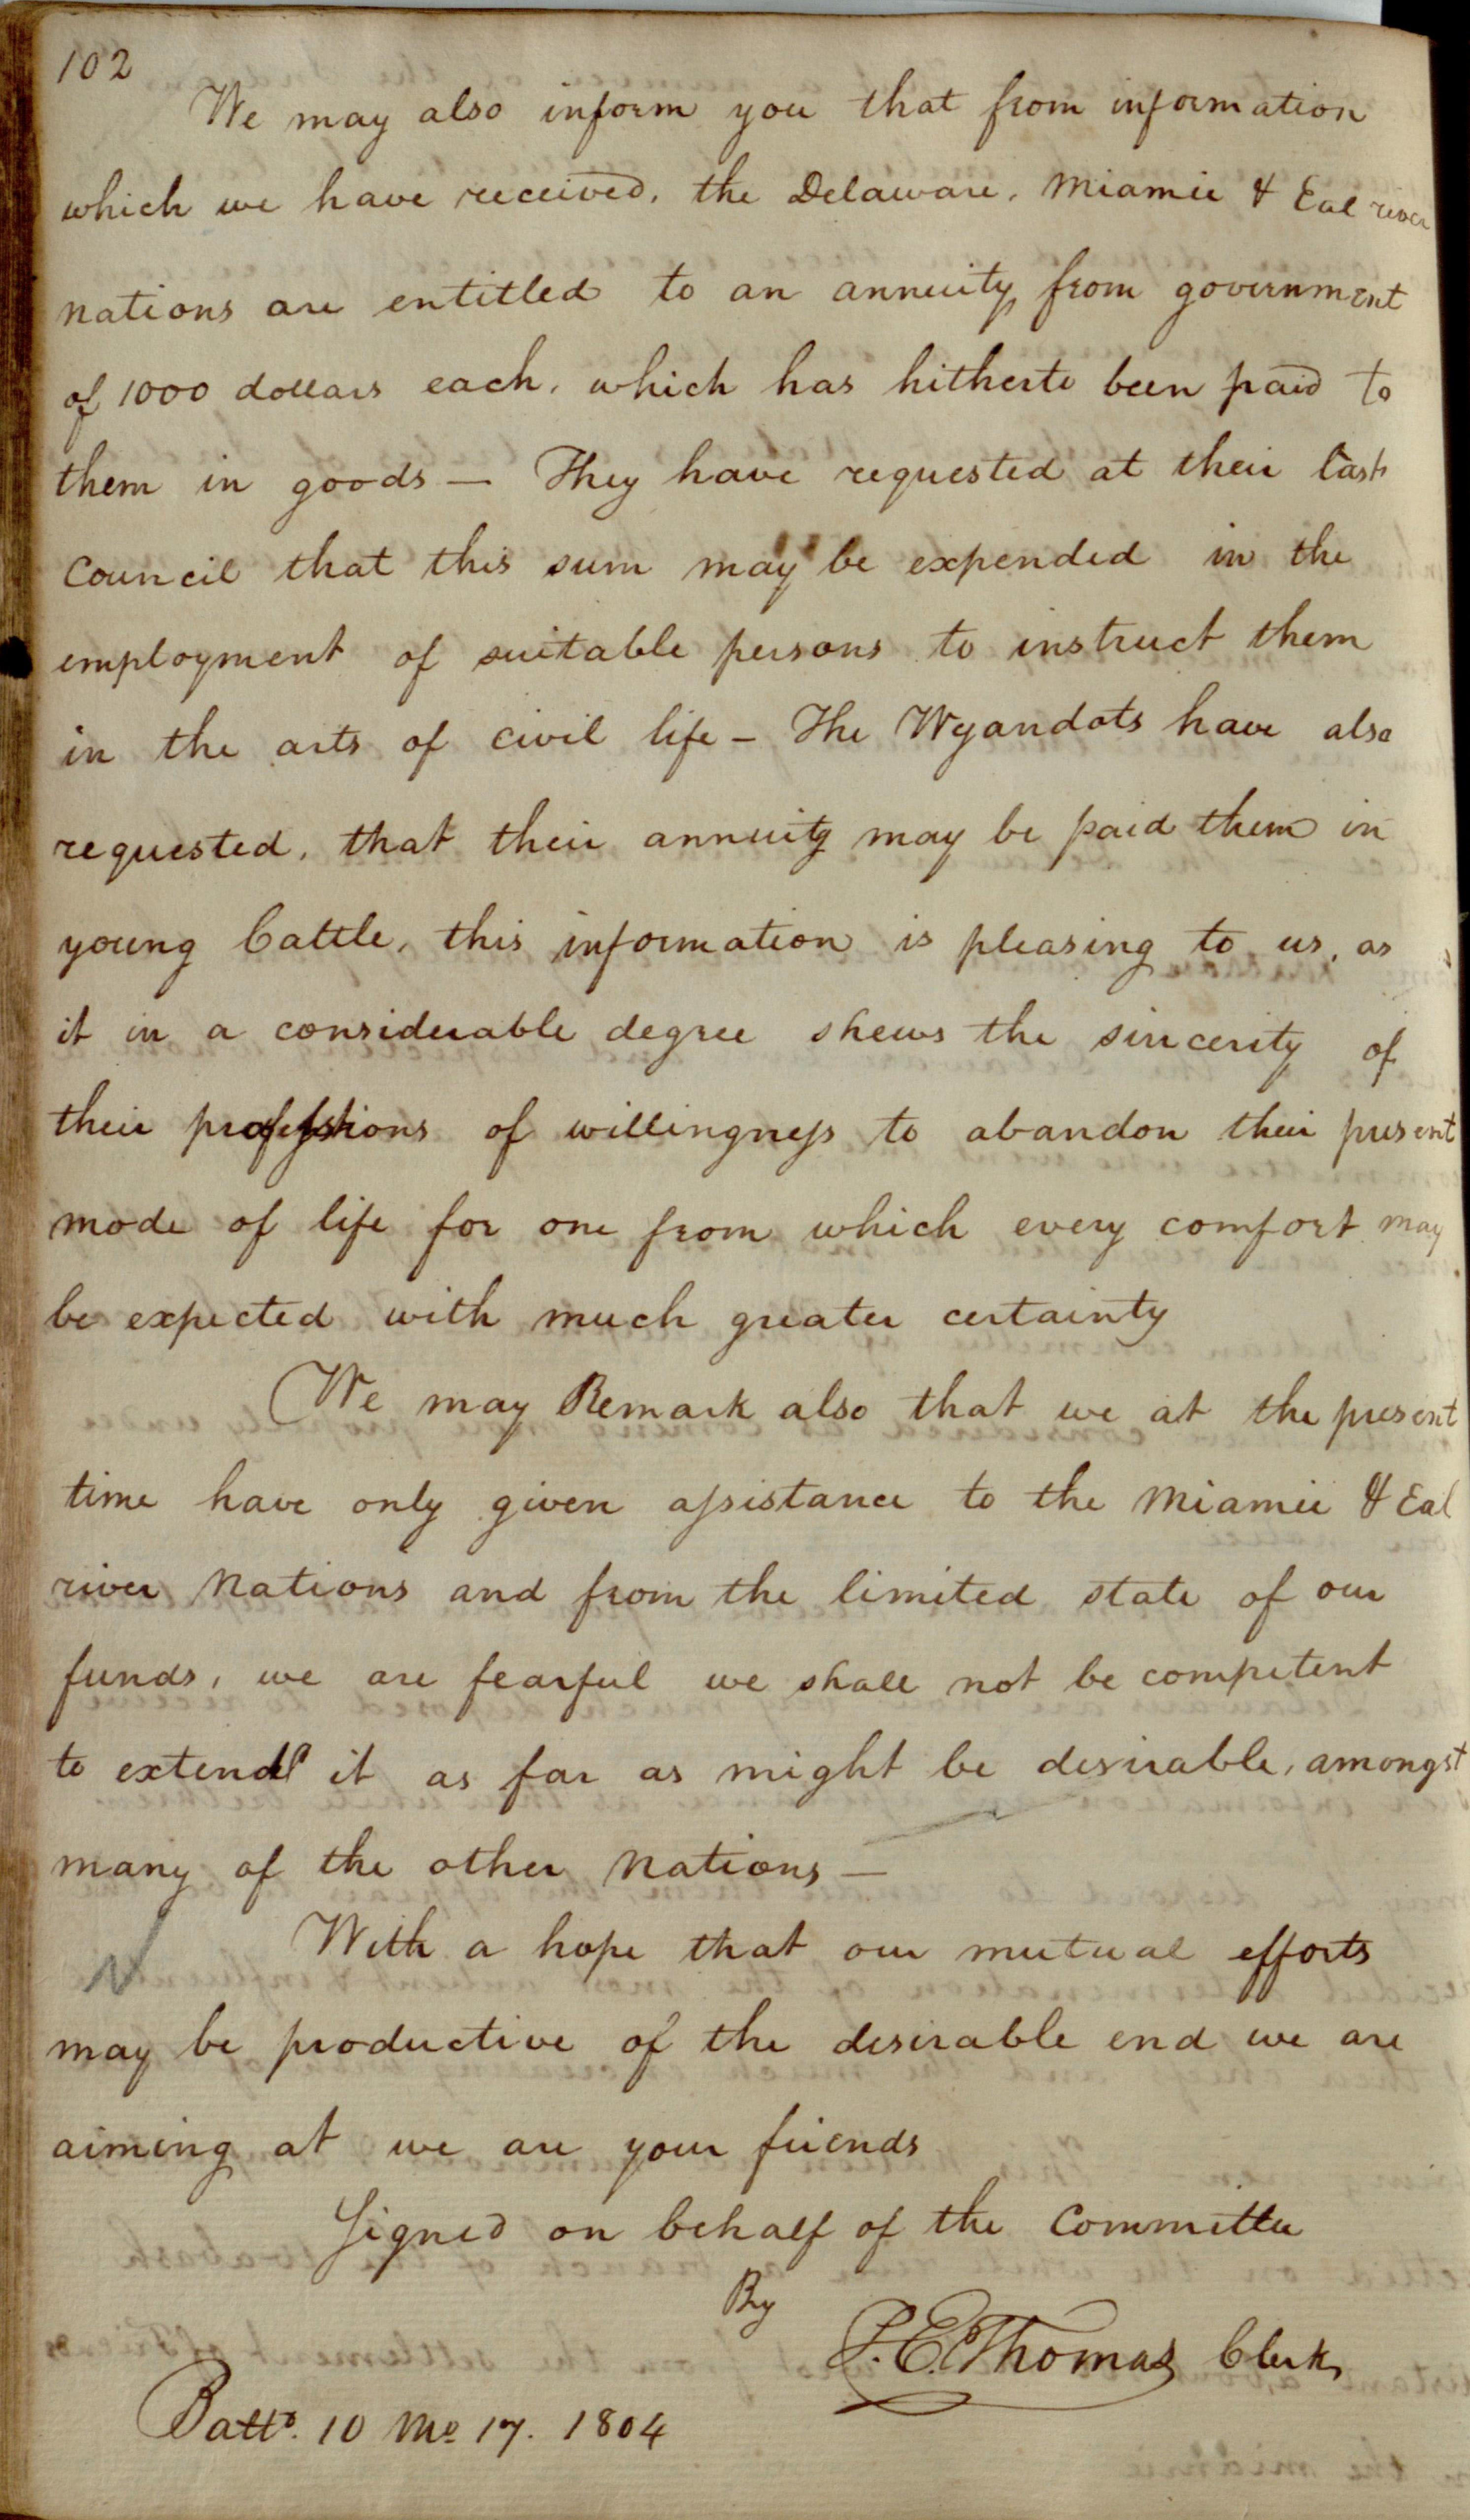 102
We may also inform you that from information
which we have received, the Delaware, Miamie & Eal river
nations are entitled to an annuity from government
of 1000 dollars each, which has hitherto been paid to
them in goods — They have requested at their last
Council that this sum may be expended in the
employment of suitable persons to instruct them
in the arts of civil life – The Wyandots have also
requested, that their annuity may be paid them in
young Cattle, this information is pleasing to us, as
it in a considerable degree shews the sincerity of
their professions of willingness to abandon their present
mode of life for one from which every comfort may
be expected with much greater certainty
We may Remark also that we at the present
time have only given assistance to the Miamie & Eal
river Nations and from the limited state of our
funds, we are fearful we shall not be competent
to extend it as far as might be desirable, amongst
many of the other Nations —
With a hope that our mutual efforts
may be productive of the desirable end we are
aiming at we are your friends
Signed on behalf of the Committee
By
P. E. Thomas Clerk
Balto. 10 Mo 17. 1804